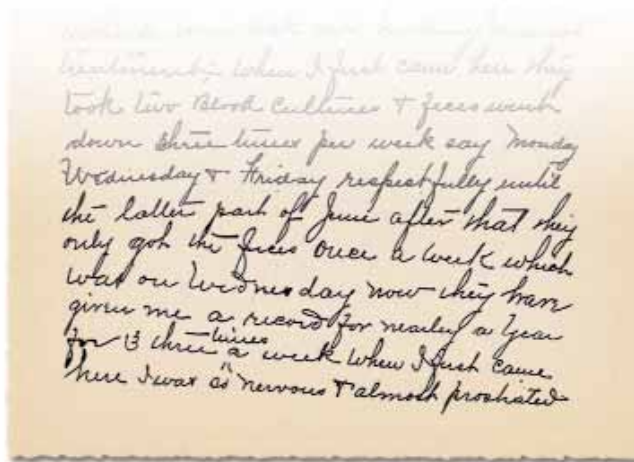 treatments, when I first came here they
took two Blood Cultures & feces went
down three times per week say Monday
Wednesday & Friday respectfully until
the latter part of June after that they
only got the feces once a week which
was on Wednesday now they have
given me a record for nearly a year
for 3 three times a week when I first came
here I was so nervous & almost prostrated